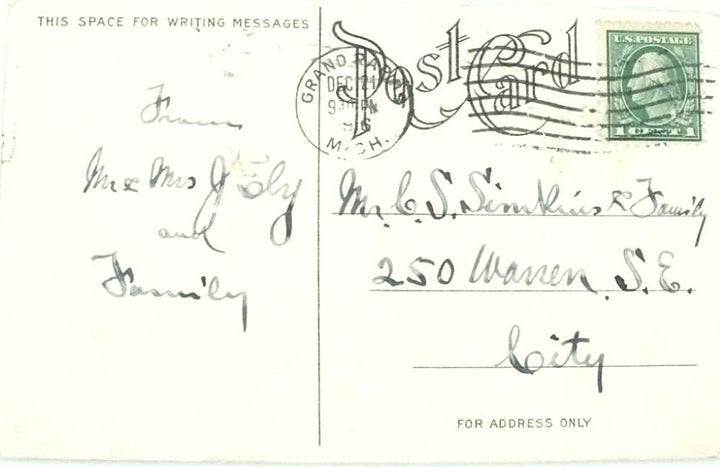 THIS SPACE FOR WRITING MESSAGES
Post Card
GRAND RAPIDS
DEC 21
930 PM
MICH.
U.S. POSTAGE
1 CENT 1
From
Mr & Mrs J
and
Family
Mr. C. S. Simkins & Family
250 Warren S.E.
City
FOR ADDRESS ONLY